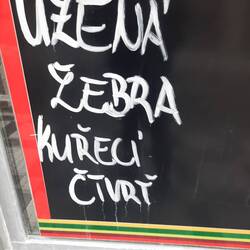 UZENÁ
ŽEBRA
KUŘECÍ
ČTVRŤ